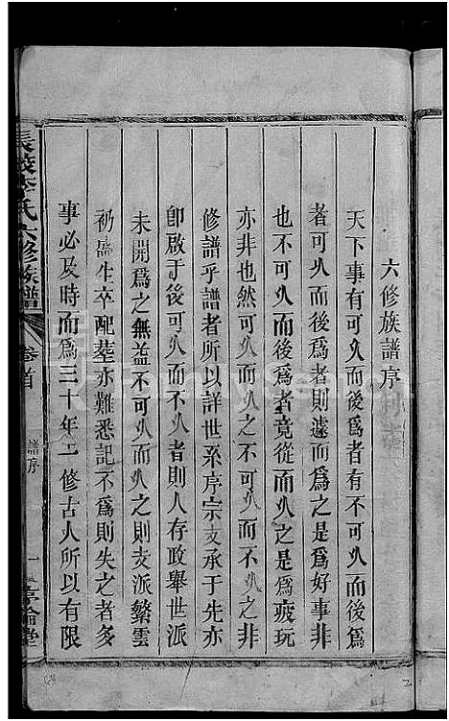 六修族譜序
天下事有可久而後爲者有不可久而後爲
者可久而後爲者則遽而爲之是爲好事非
也不可久而後爲者竟從而久之是爲疲玩
亦非也然可久而久之不可久而不久之非
修譜乎譜者所以詳世系序宗支承于先亦
卽啟于後可久而不久者則人存政舉世派
未開爲之無益不可久而久之則支派繁雲
礽盛生卒配塟亦難悉記不爲則失之者多
事必及時而爲三十年一修古人所以有限
氏六修族譜
卷首
譜序
一